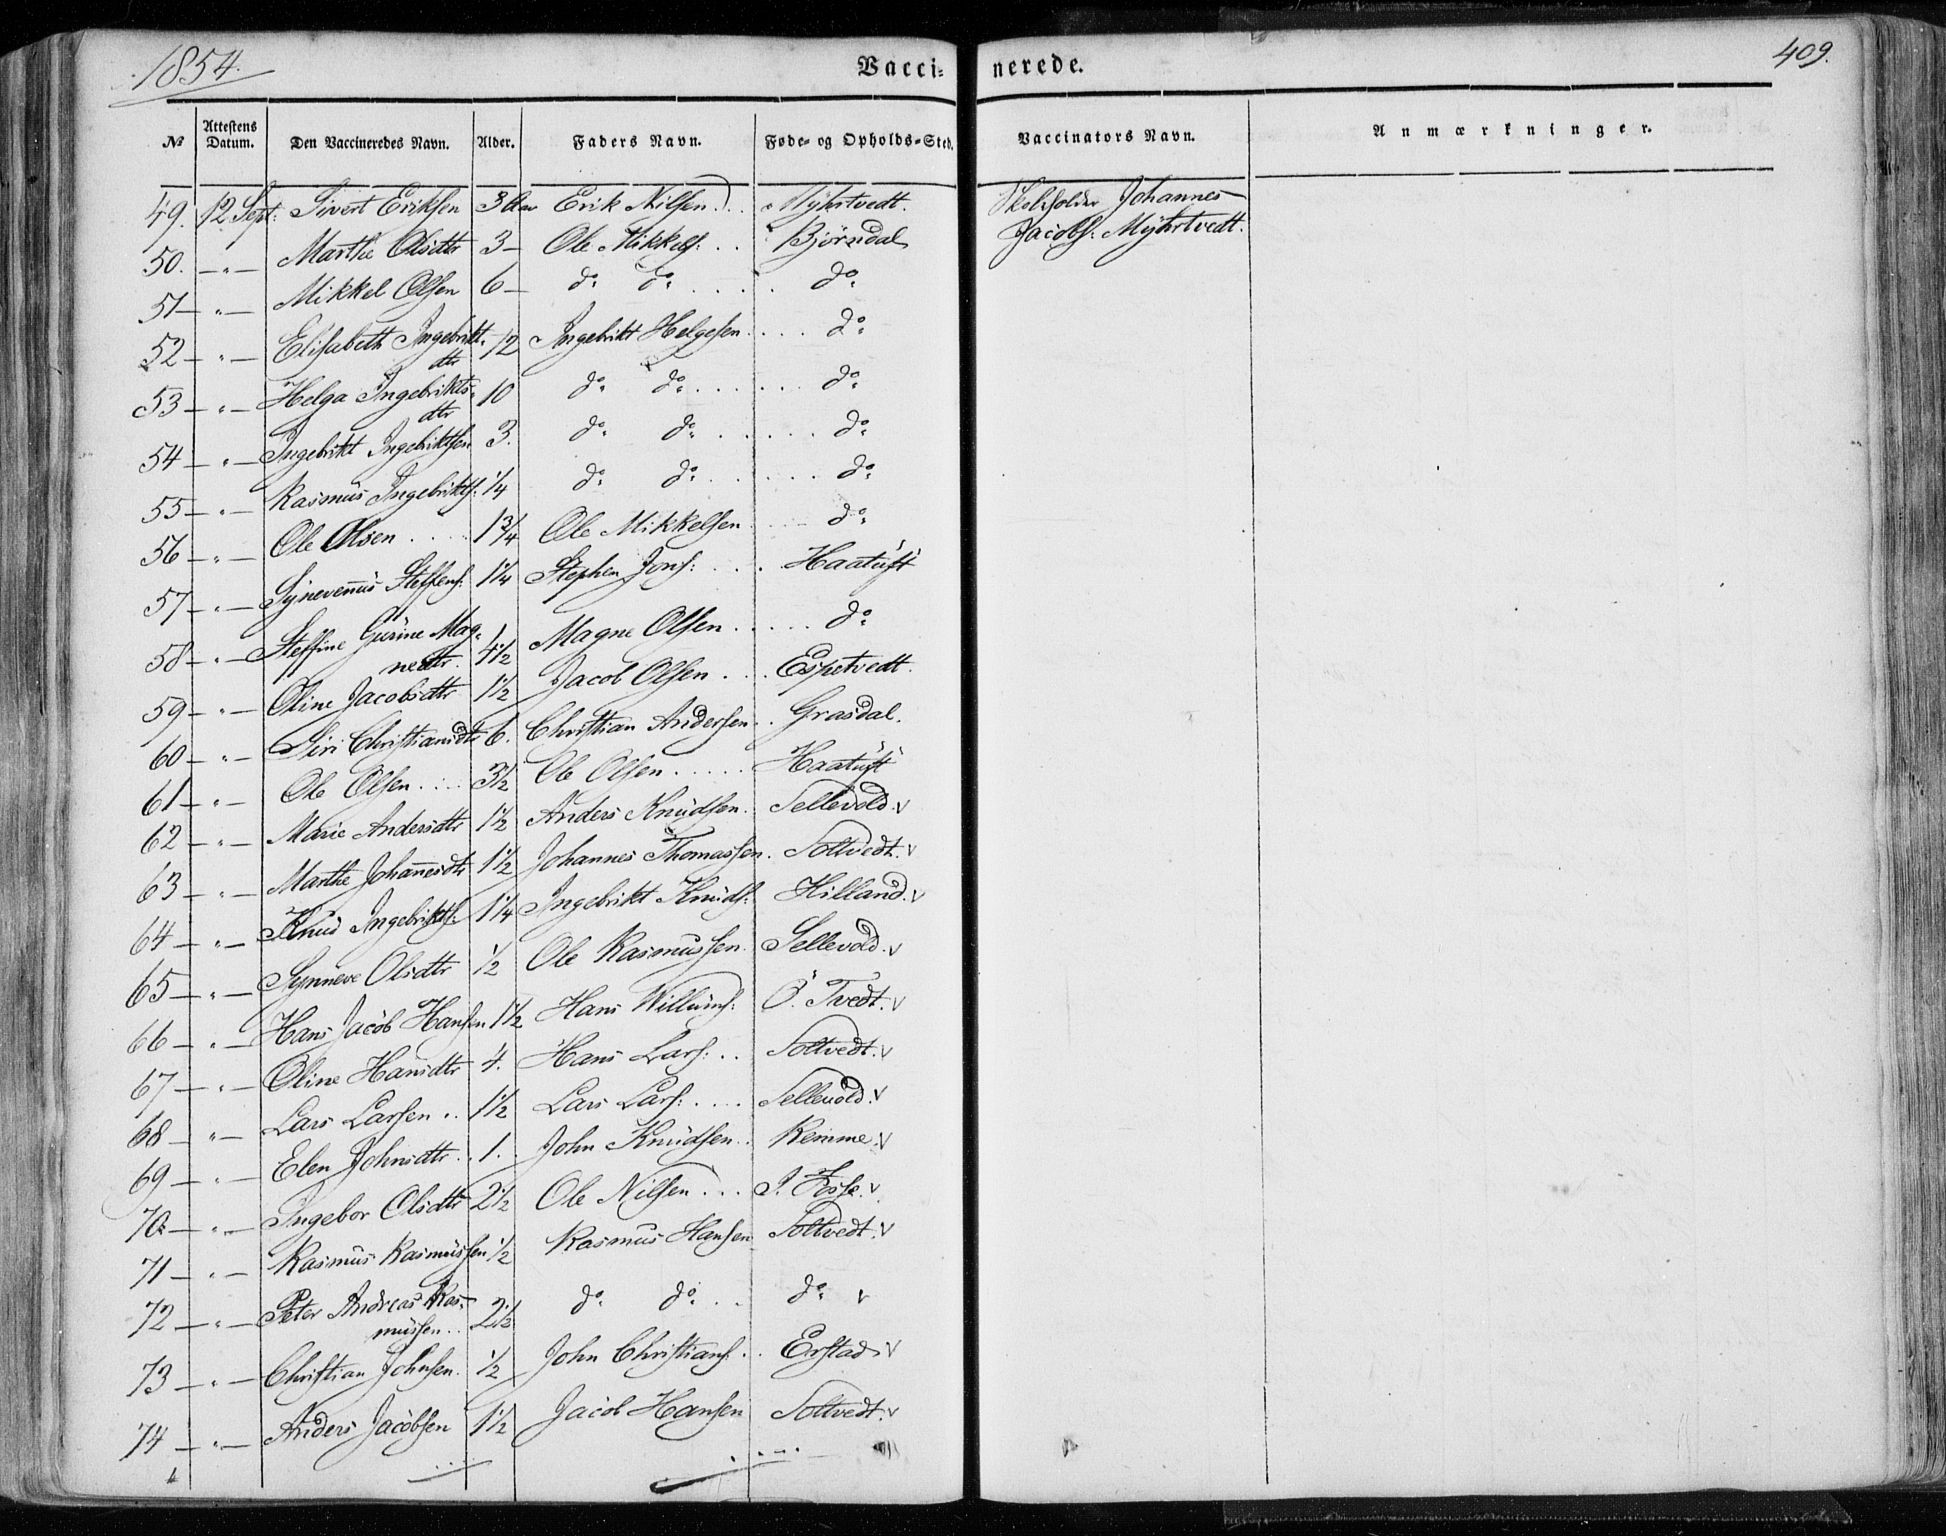 1854.
Vaccinerede.
409.
№ Attestens Datum. Den Vaccineredes Navn. Alder. Faders Navn. Føde- og Opholds-Sted. Vaccinators Navn. Anmærkninger.
49. 12 Sept: Sivert Eriksen 3 Erik Nilsen... Myhrtvedt. Skoleholder Johannes
50. — " — Marthe Olsdtr 3 — Ole Mikkels: .. Bjørndal Jacobs: Myhrtvedt.
51 — " — Mikkel Olsen 6 — do do .... do
52 — " — Elisabeth Ingebrikt- 1/2 Ingebrikt Helgesen ... do
dtr
53 — " — Helga Ingebrikts- 10 do do ...... do
dtr
54 — " — Ingebrikt Ingebriktsen 3. do do ...... do
55 — " — Rasmus Ingebrikts: 1/4 do do ...... do
56 — " — Ole Olsen .... 1 3/4 Ole Mikkelsen ... do
57 — " — Steffens: 1 1/4 Stephen Jons: ... Haatuft
58 — " — Steffine Gurine Mag- 4 1/2 Magne Olsen ..... do
nedtr.
59 — " — Oline Jacobsdtr 1 1/2 Jacob Olsen ... Espetvedt.
60 — " — Siri Christiansdtr 6. Christian Andersen .. Grasdal.
61 — " — Ole Olsen .... 3 1/2 Ole Olsen ..... Haatuft
62 — " — Marie Andersdtr 1 1/2 Anders Knudsen. Sellevold. v
63 — " — Marthe Johannesdtr 1 1/2 Johannes Thomassen. Soltvedt. v
64 — " — Knud Ingebrikts: 1 1/4 Ingebrikt Knuds: Hilland. v
65 — " — Synneve Olsdtr 1/2 Ole Rasmussen. Sellevold. v
66 — " — Hans Jacob Hansen 1 1/2 Hans Willums: Ö. Tvedt. v
67 — " — Oline Hansdtr 4. Hans Lars: .. Soltvedt. v
68 — " — Lars Larsen .. 1 1/2 Lars Lars: .... Sellevold. v
69 — " — Elen Johnsdtr. 1. John Knudsen .. Remme. v
70 — " — Ingebor Olsdtr 2 1/2 Ole Nilsen ... I. Fosse. v
71 — " — Rasmus Rasmussen 1/2 Rasmus Hansen Soltvedt. v
72 — " — Peter Andreas Ras- 2 1/2 do do .. do v
mussen ..
73 — " — Christian Johnsen. 1/2 John Christians: .. Erstad v
74 — " — Anders Jacobsen 1 1/2 Jacob Hansen Soltvedt. v